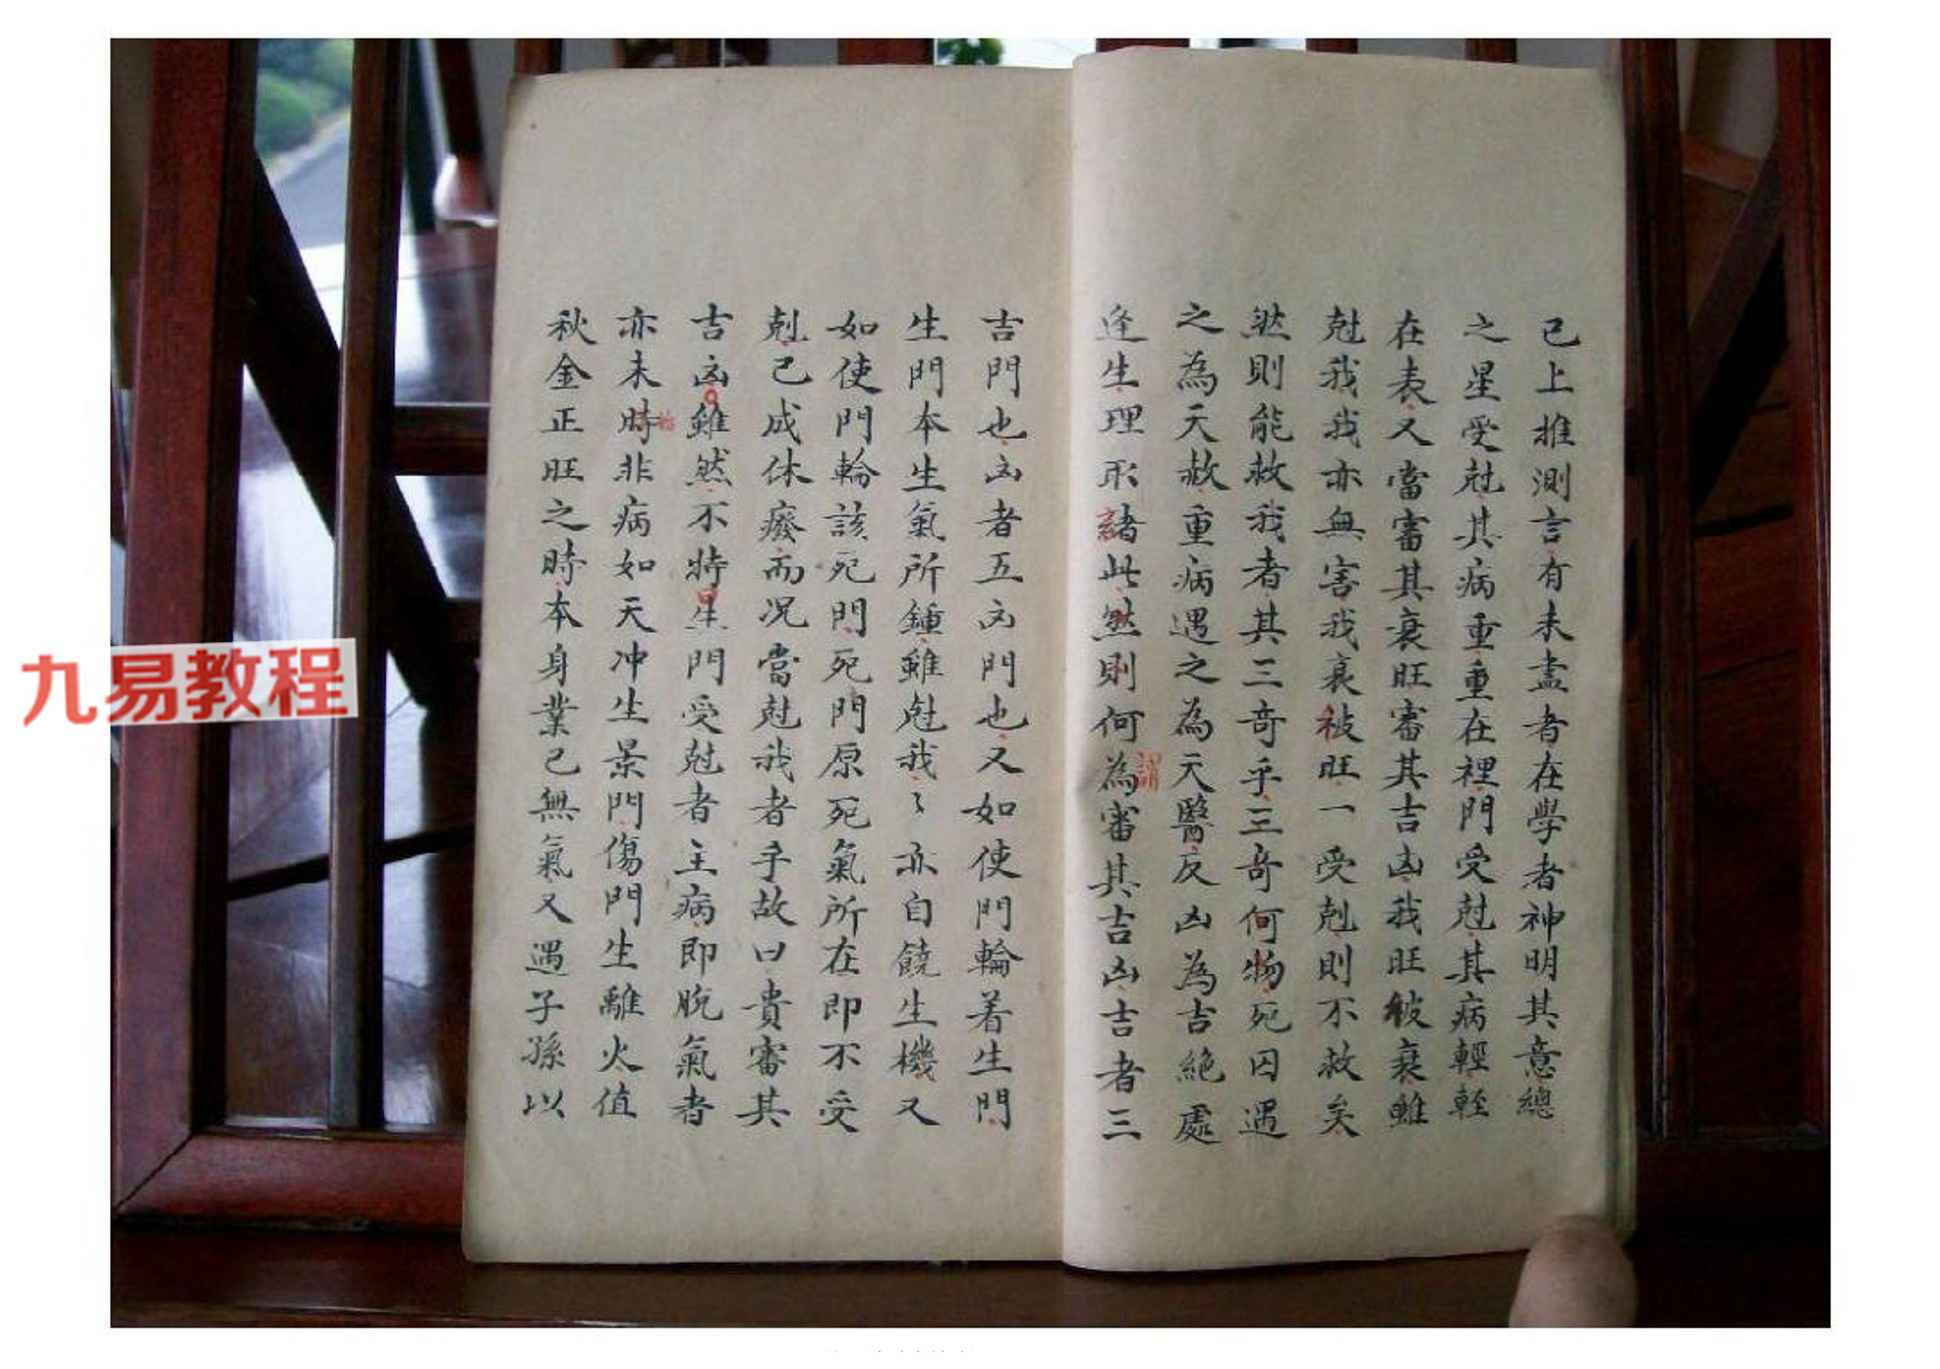 已上推測言有未盡者在學者神明其意總
之星受尅其病重重在裡門受尅其病輕輕
在表又當審其衰旺審其吉凶我旺彼衰雖
尅我我亦無害我衰被旺一受剋則不救矣
然則能救我者其三奇乎三奇何物死囚遇
之為天赦重病遇之為天醫反凶為吉絶處
逢生理形諸此然則何為審其吉凶吉者三
吉門也凶者五凶門也又如使門輪着生門
生門本生氣所鍾雖尅我〻亦自饒生機又
如使門輪該死門死門原死氣所在即不受
剋已成休癈而况當尅我者乎故曰貴審其
吉凶雖然不特星門受尅者主病即脫氣者
亦未時非病如天冲生景門傷門生離火值
秋金正旺之時本身業已無氣又遇子孫以
九易教程